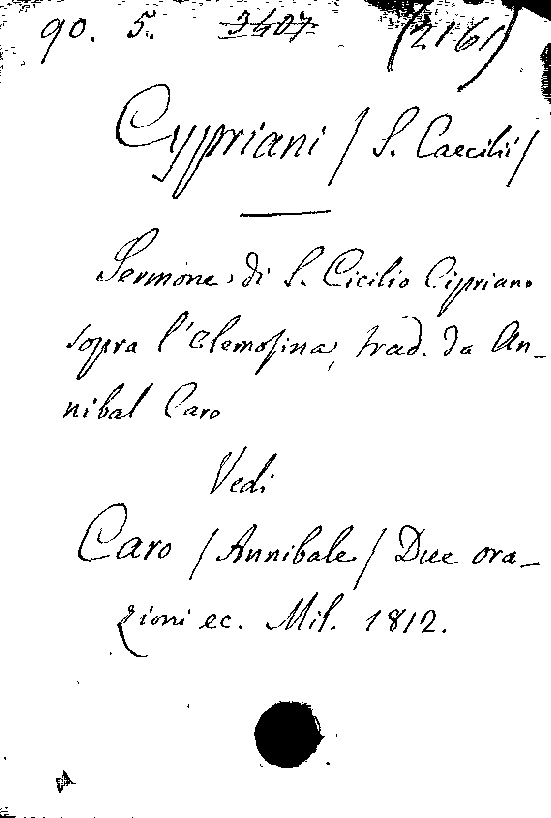 90. 5. 3407 (2161)
Cypriani / S. Caecilii /
Sermone di S. Cicilio Cipriano
sopra l'Elemosina, trad. da An-
nibal Caro
Vedi
Caro / Annibale / Due ora-
zioni ec. Mil. 1812.